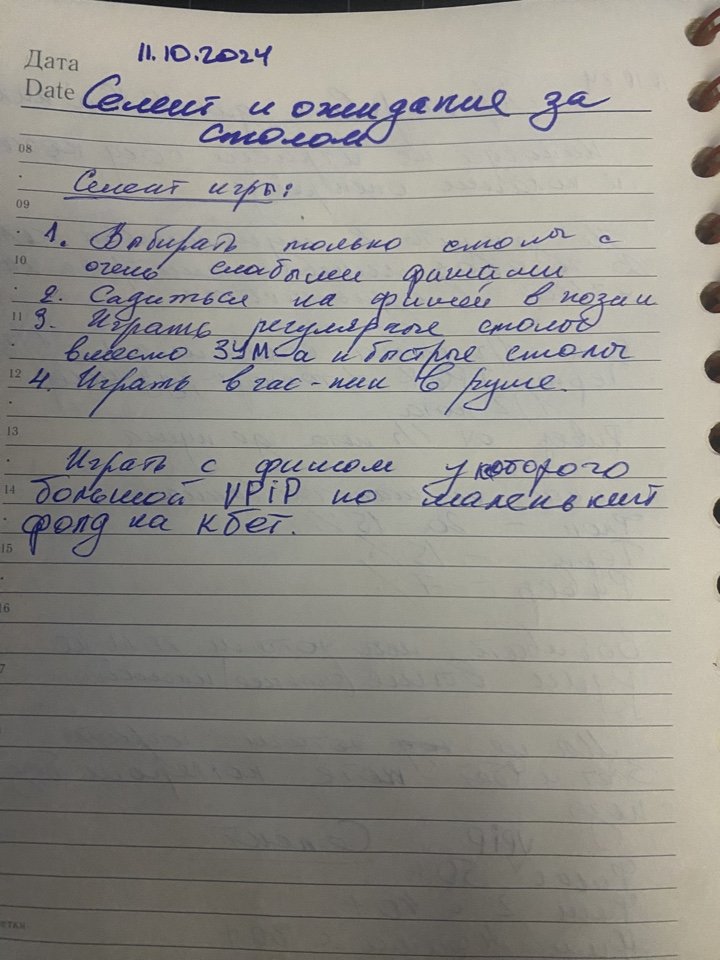 Дата
11.10.2024
Date
Селект и ожидание за
столом
08
Селект игры:
09
1. Выбирать только столы с
10
очень слабыми фишами
2. Садиться на фишей в позаи
11
3. Играть регулярные столы
вместо ЗУМ-а и быстрые столы
12
4. Играть в час-пик в руме.
13
Играть с фишом у которого
14
большой VPiP но маленький
фолд на кбет.
15
16